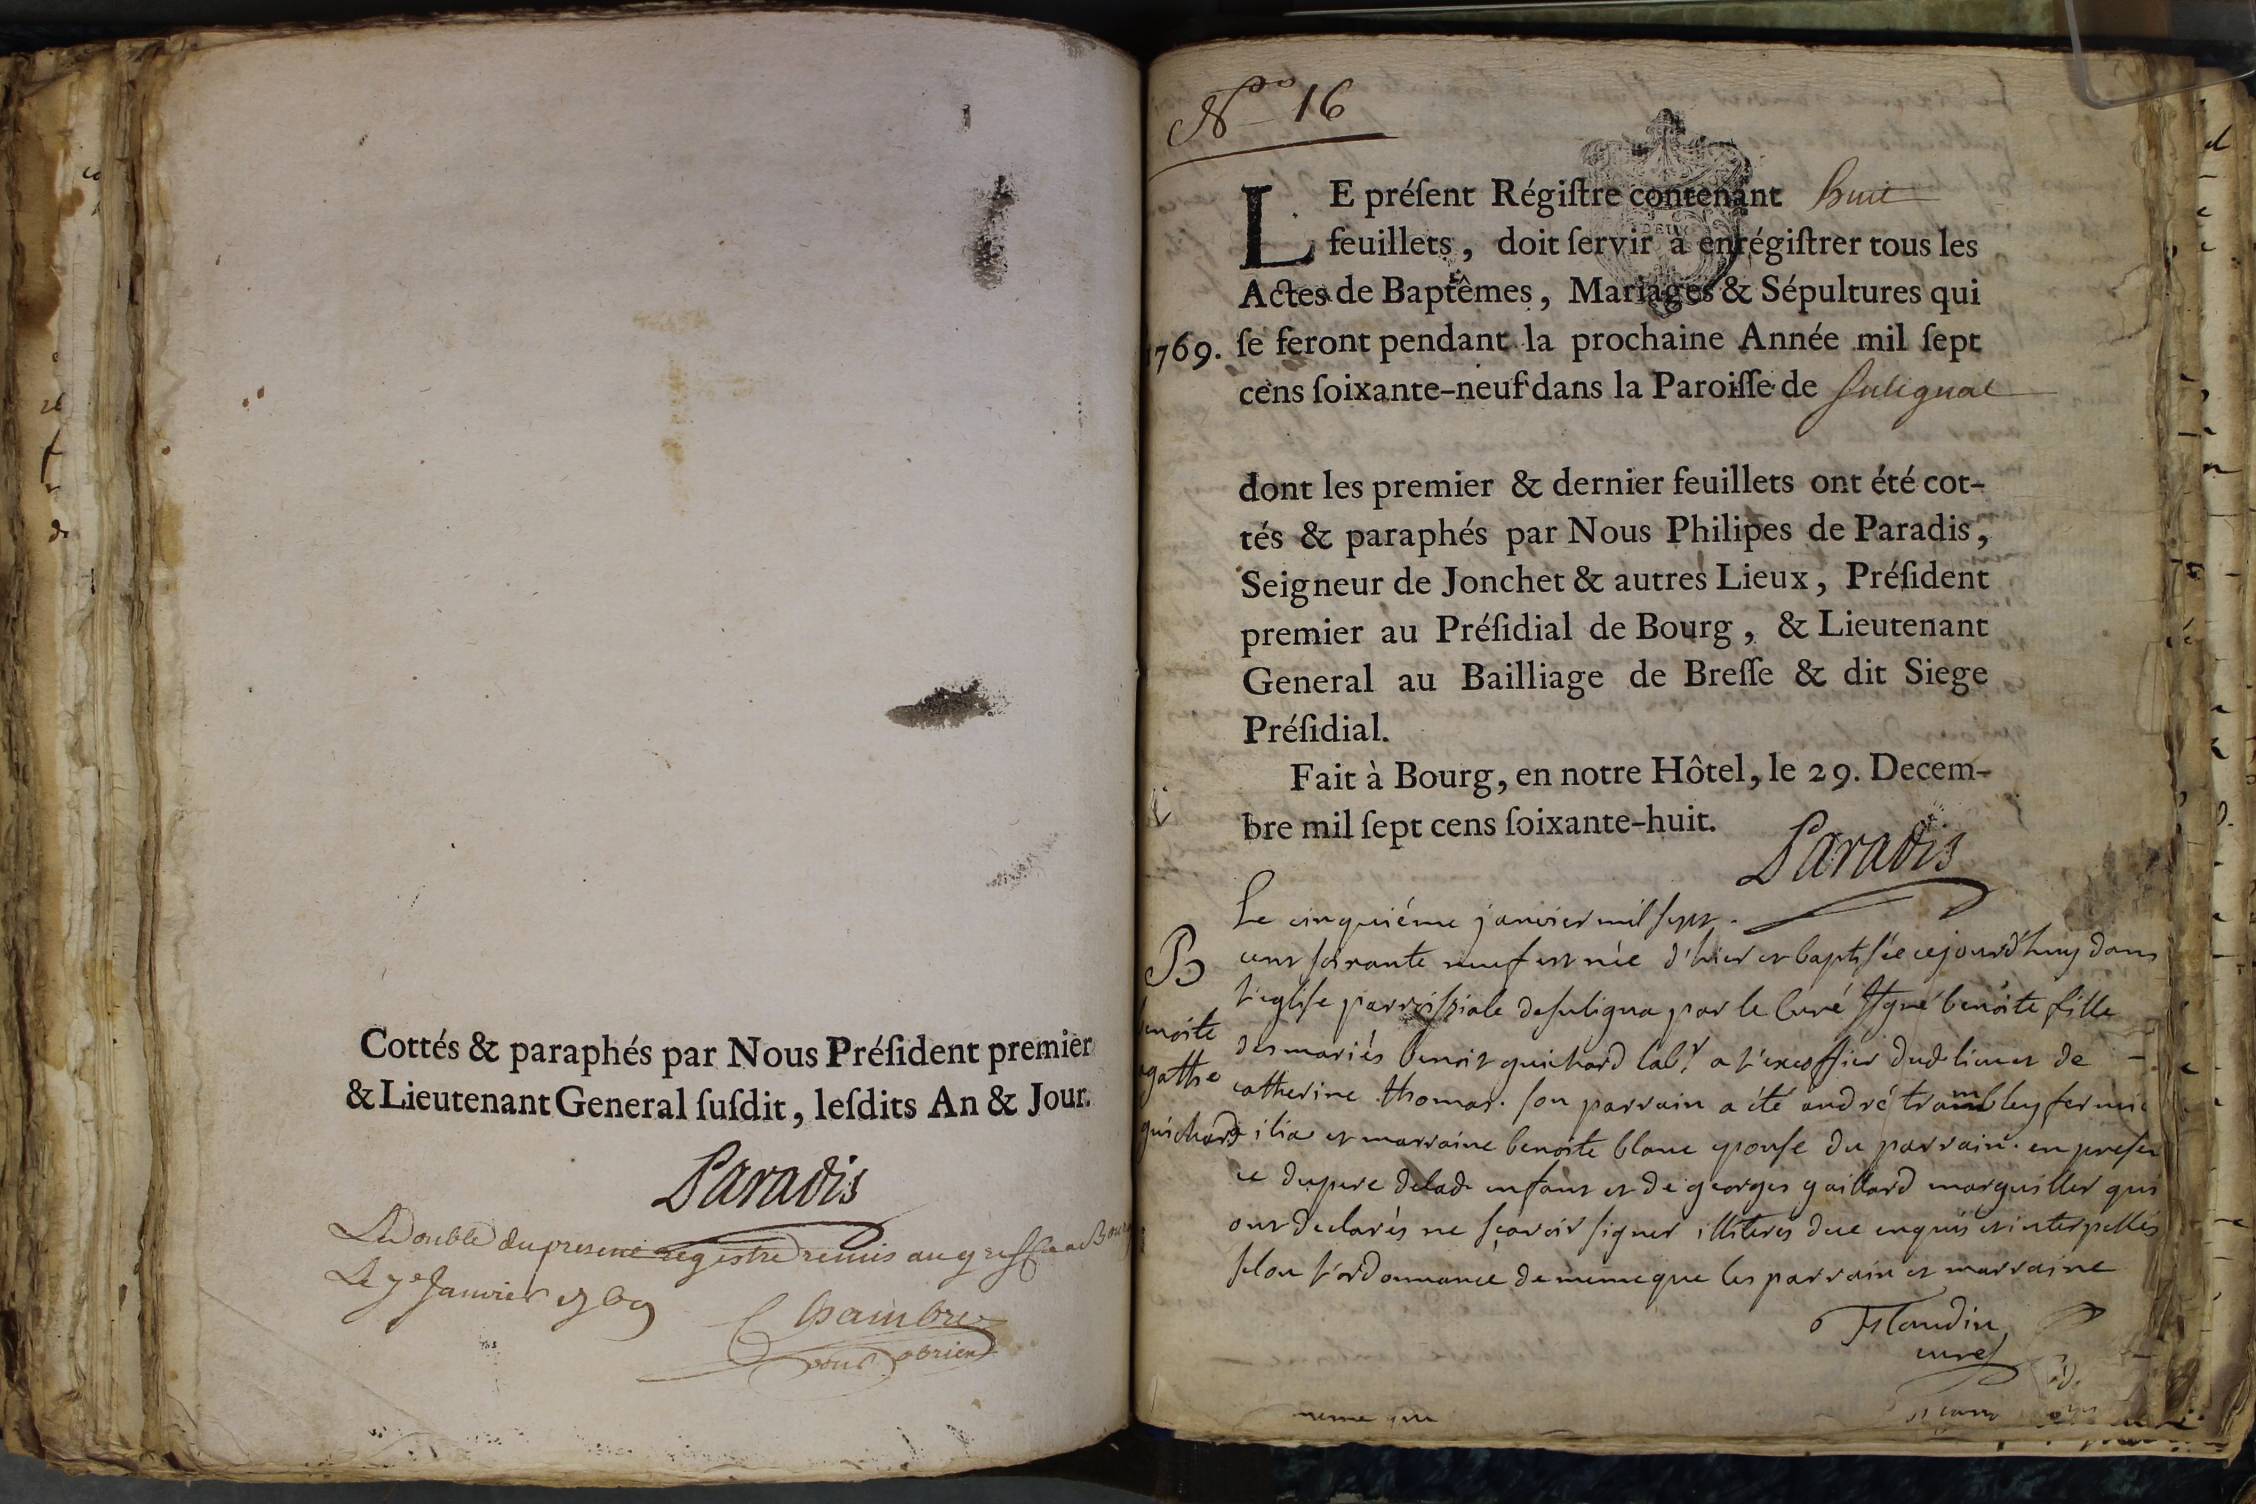 Cottés & paraphés par Nous Préſident premier
& Lieutenant General ſuſdit, leſdits An & Jour.
Paradis
Le Double du present registre remis au greffe de Bourg
Le 7e Janvier 1769
Chambre
No 16
LE préſent Régiſtre contenant huit
feuillets, doit ſervir à enrégiſtrer tous les
Actes de Baptêmes, Mariages & Sépultures qui
1769. ſe feront pendant la prochaine Année mil ſept
cens ſoixante-neuf dans la Paroiſſe de Sulignat
dont les premier & dernier feuillets ont été cot-
tés & paraphés par Nous Philipes de Paradis,
Seigneur de Jonchet & autres Lieux, Préſident
premier au Préſidial de Bourg, & Lieutenant
General au Bailliage de Breſſe & dit Siege
Préſidial.
Fait à Bourg, en notre Hôtel, le 29. Decem-
bre mil ſept cens ſoixante-huit.
Paradis
B
benoite
agathe
guichard
Le cinquiéme janvier mil sept
cent soixante neuf est née d'hier et baptisée cejourd'huy dans
l'eglise parroissiale de suligna par le Curé ssigné benoite fille
des mariés benoit guichard labr a dud lieu et de
catherine thomas. son parrain a été andré trambley fermier
et marraine benoite blanc epouse du parrain. en presen
ce du pere de lad enfant et de georges gaillard marguiller qui
ont declarés ne sçavoir signer illiterés de ce enquis et interpellés
selon l'ordonnance de meme que les parrain et marraine
Flandin
curé
meme que